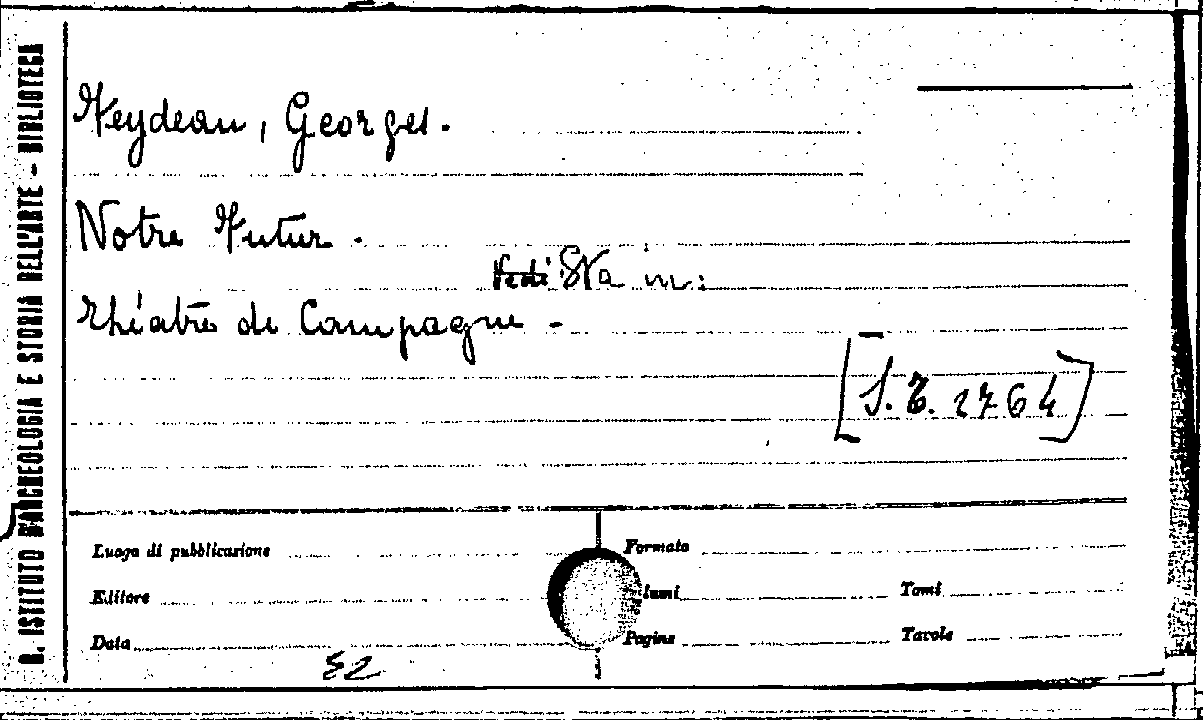 R. ISTITUTO D'ARCHEOLOGIA E STORIA DELL'ARTE - BIBLIOTECA
Feydeau, Georges.
Notre Futur.
Vedi Sta in:
Théâtre de Campagne -
[S. T. 1764]
Luogo di pubblicazione
Formato
Editore
lumi
Tomi
Data
Pagine
Tavole
52